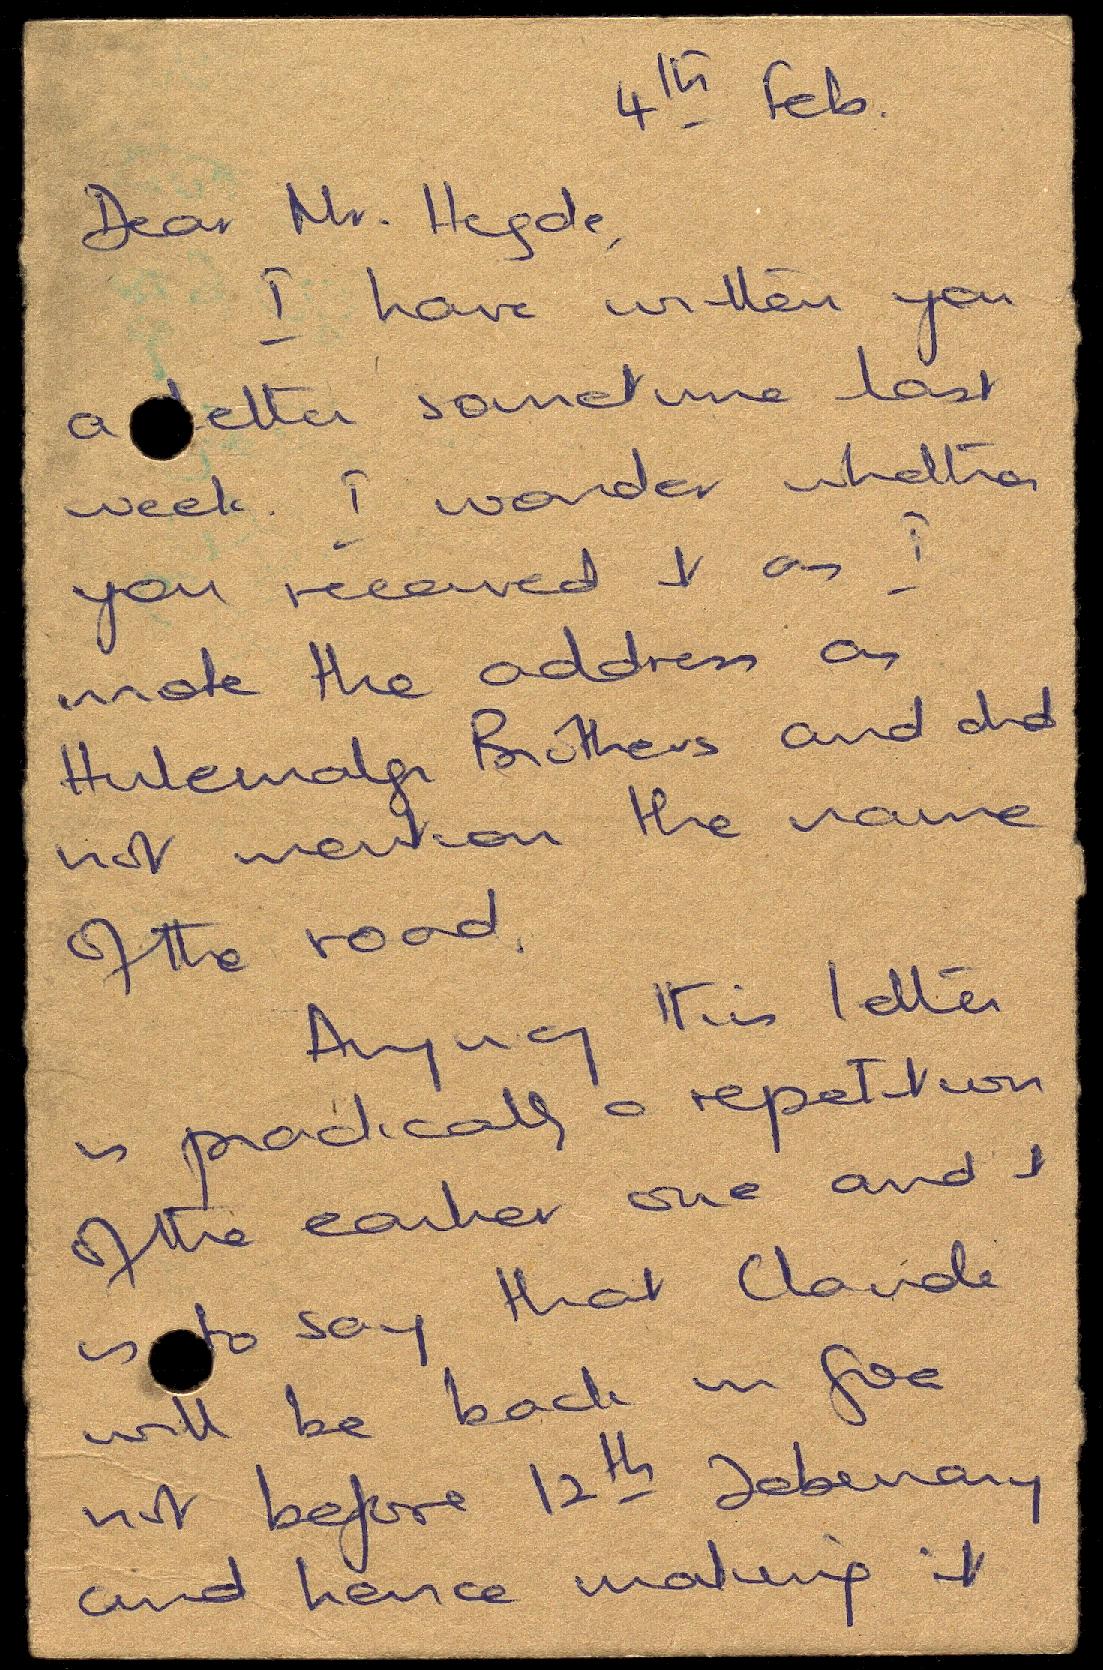 4th Feb.
Dear Mr. Hegde,
I have written you
a letter sometime last
week. I wonder whether
you received it as I
wrote the address as
Hulemalgi Brothers and did
not mention the name
of the road.
Anyway this letter
is practically a repetition
of the earlier one and it
is to say that Claude
will be back in Goa
not before 12th Febuary
and hence making it